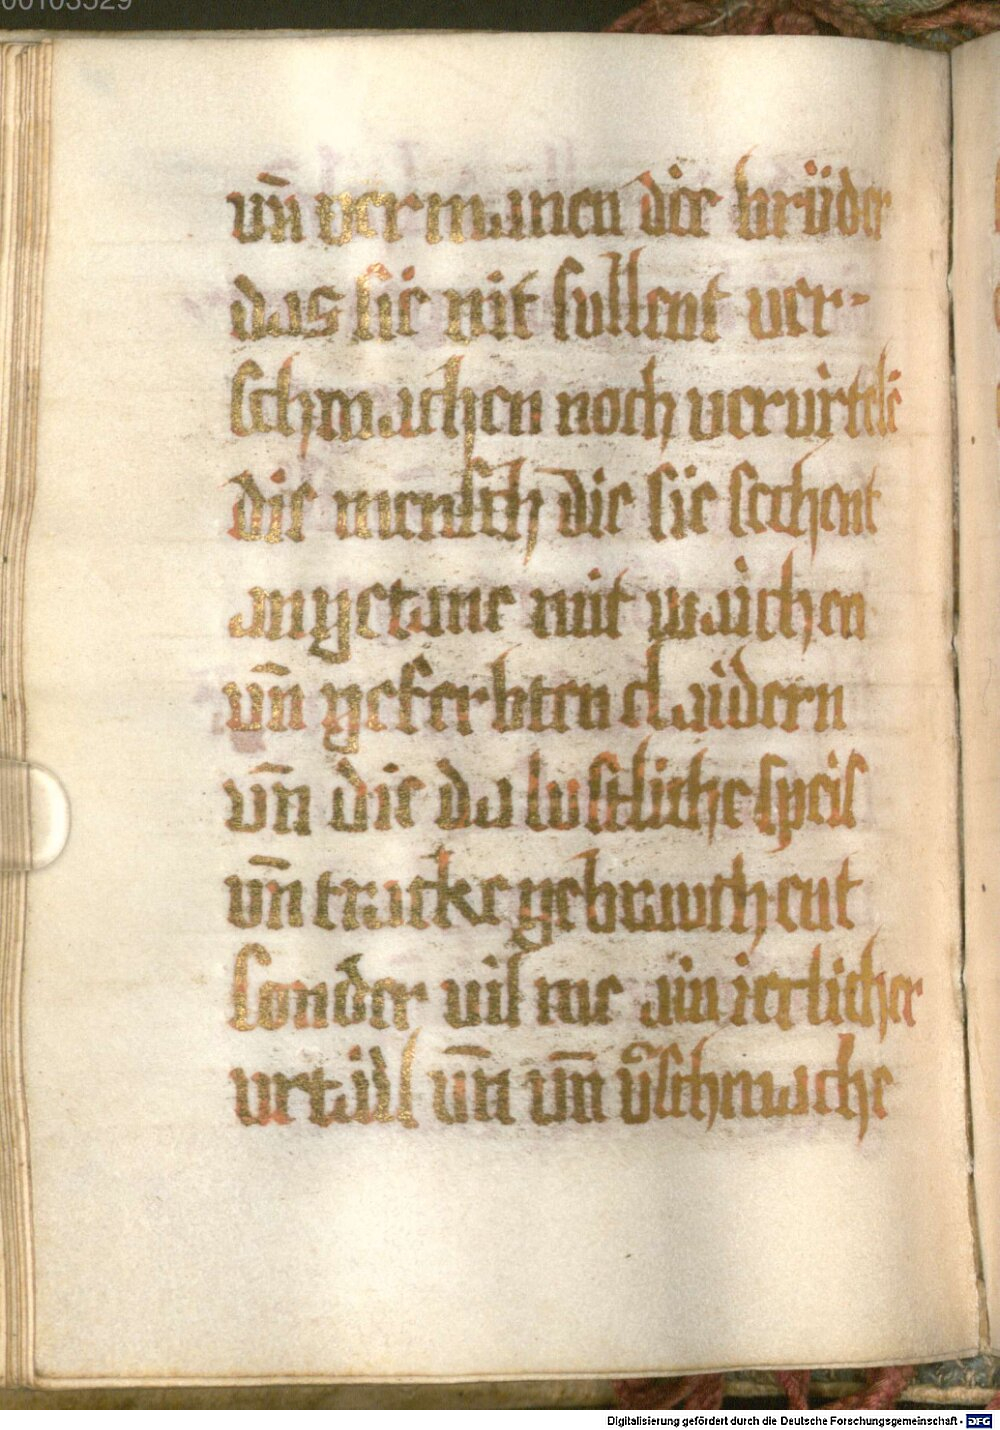 00103529
vn̄ vermanen die brüder
das sie nit sullent ver-
schmachen noch verurteile
die mensch die sie sechent
angetane mit waichen
vn̄ geferbten claidern
vn̄ die da lustliche speis
vn̄ tracke gebrauchent
sonder vil me ain ierlicher
urtail vn̄ vn̄ v̄schmache
Digitalisierung gefördert durch die Deutsche Forschungsgemeinschaft - DFG